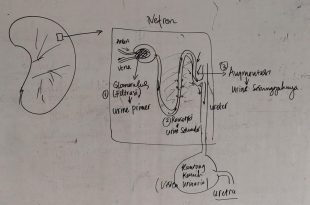 Nefron
Arteri
Vena
Glomerulus
(filtrasi)
①
Urine primer
② Reabsorpsi
Urine Sekunder
③
Augmentasi
Urine Sesungguhnya
ureter
Kantong
Kemih
(Vesica Urinaria)
uretra